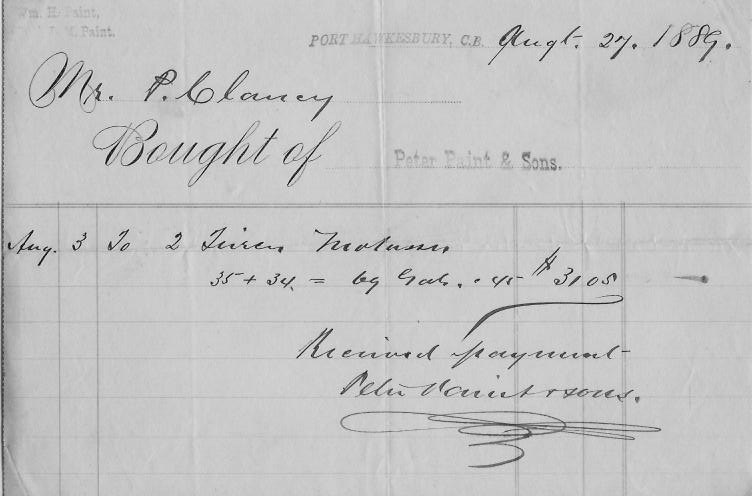 Wm. H. Paint,
M. Paint.
PORT HAWKESBURY, C.B. Augt. 27. 1889.
Mr. P. Clancy
Bought of Peter Paint & Sons.
Aug. 3 To 2 Tierces Molasses
35 + 34 = 69 Gals. . 45 $ 31 05
Received payment
Peter Paint & Sons.